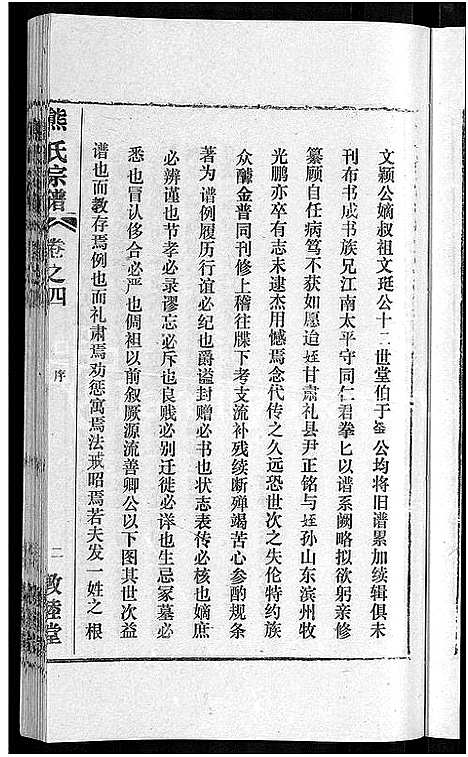 文颖公嫡叔祖文珽公十二世堂伯于
公均将旧谱累加续辑俱未
刊布书成书族兄江南太平守同仁君拳匕以谱系阙略拟欲躬亲修
纂顾自任病笃不获如愿迨姪甘肃礼县尹正铭与姪孙山东滨州牧
光鹏亦卒有志未逮杰用憾焉念代传之久远恐世次之失伦特约族
众醵金普同刊修上稽往牒下考支流补残续断殚竭苦心参酌规条
著为谱例履历行谊必纪也爵谥封赠必书也状志表传必核也嫡庶
必辨谨也节孝必录谬忘必斥也良贱必别迁徙必详也生忌冢墓必
悉也冒认侈合必严也倜祖以前叙厥源流善卿公以下图其世次益
谱也而教存焉例也而礼肃焉劝惩寓焉法戒昭焉若夫发一姓之根
熊氏宗谱
卷之四
序
二
敦睦堂